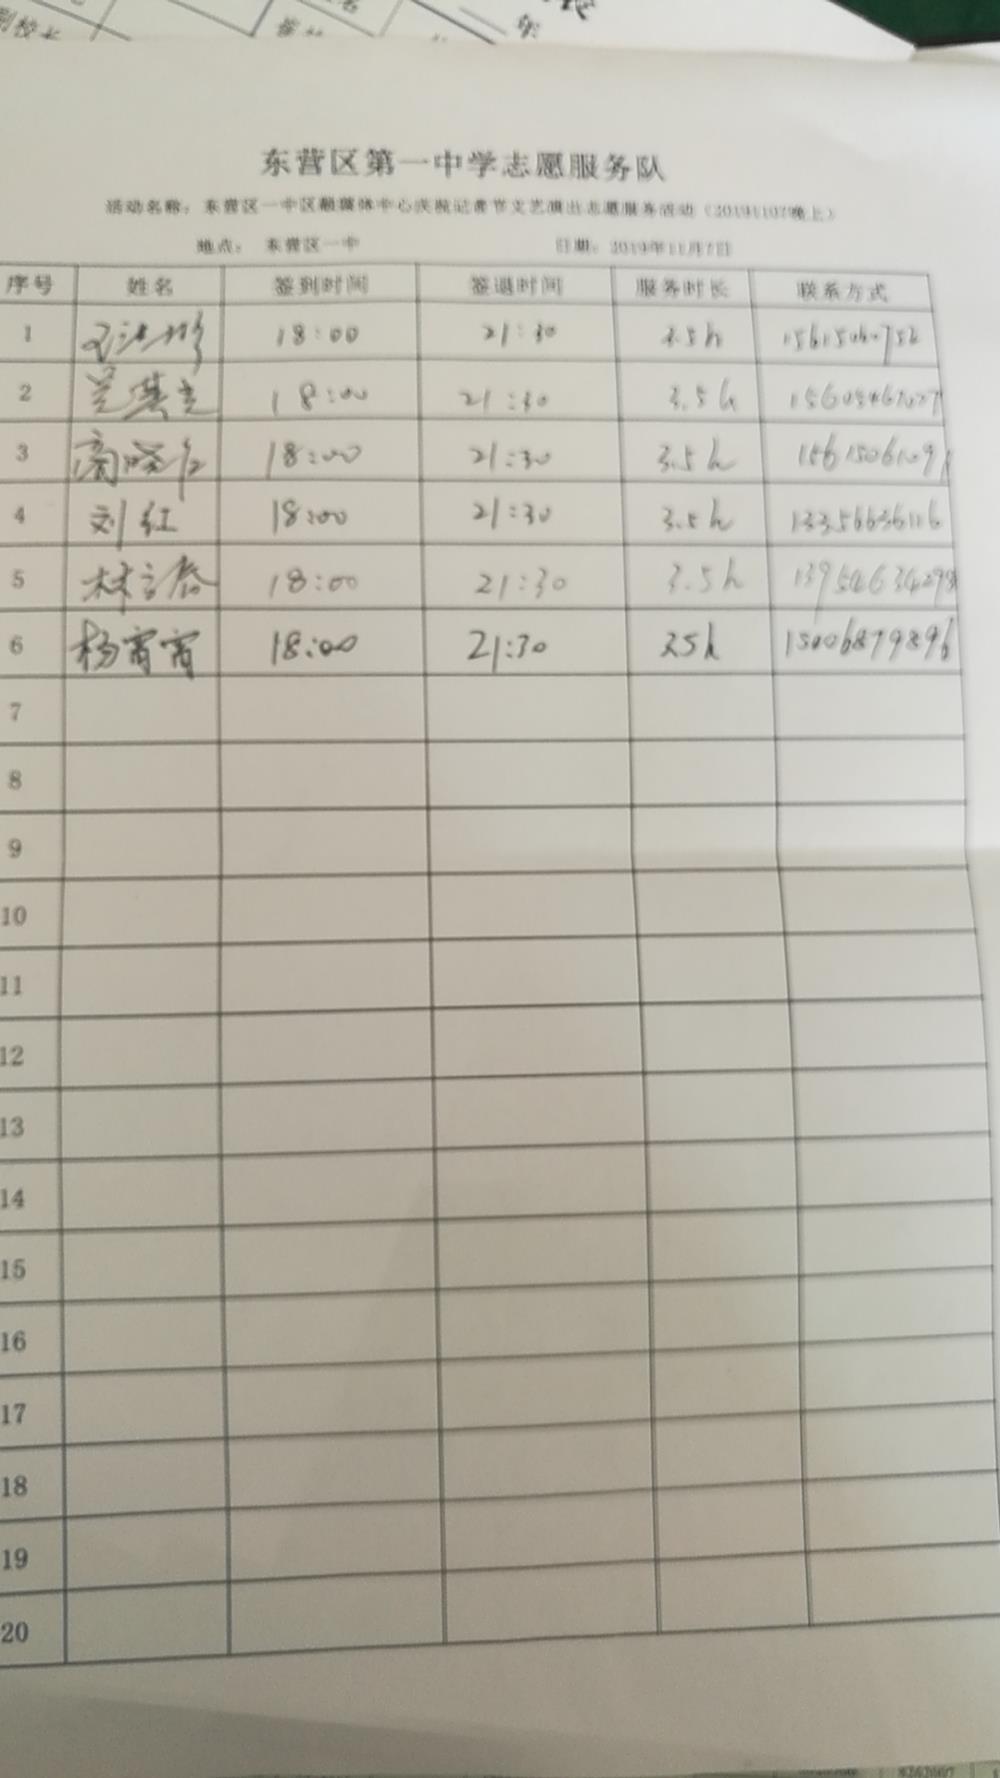 东营区第一中学志愿服务队
活动名称：东营区一中区融媒体中心庆祝记者节文艺演出志愿服务活动（20191107晚上）
地点： 东营区一中 日期：2019年11月7日
序号 姓名 签到时间 签退时间 服务时长 联系方式
1 18:00 21:30 3.5h
2 18:00 21:30 3.5h
3 18:00 21:30 3.5h 15615061091
4 刘红 18:00 21:30 3.5h 13356636116
5 18:00 21:30 3.5h 13954634298
6 杨宵宵 18:00 21:30 3.5h 15006879896
7
8
9
10
11
12
13
14
15
16
17
18
19
20